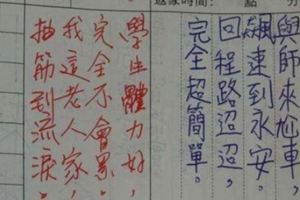 返家時間： 點 分
與師來尬車，
飆速到永安。
回程路迢迢，
完全超簡單。
學生體力好，
完全不會累。
我這老人家，
抽筋到流淚。